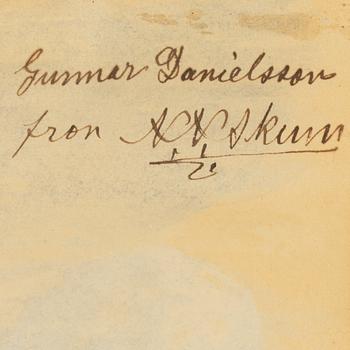 Gunnar Danielsson
fron N.N Skum